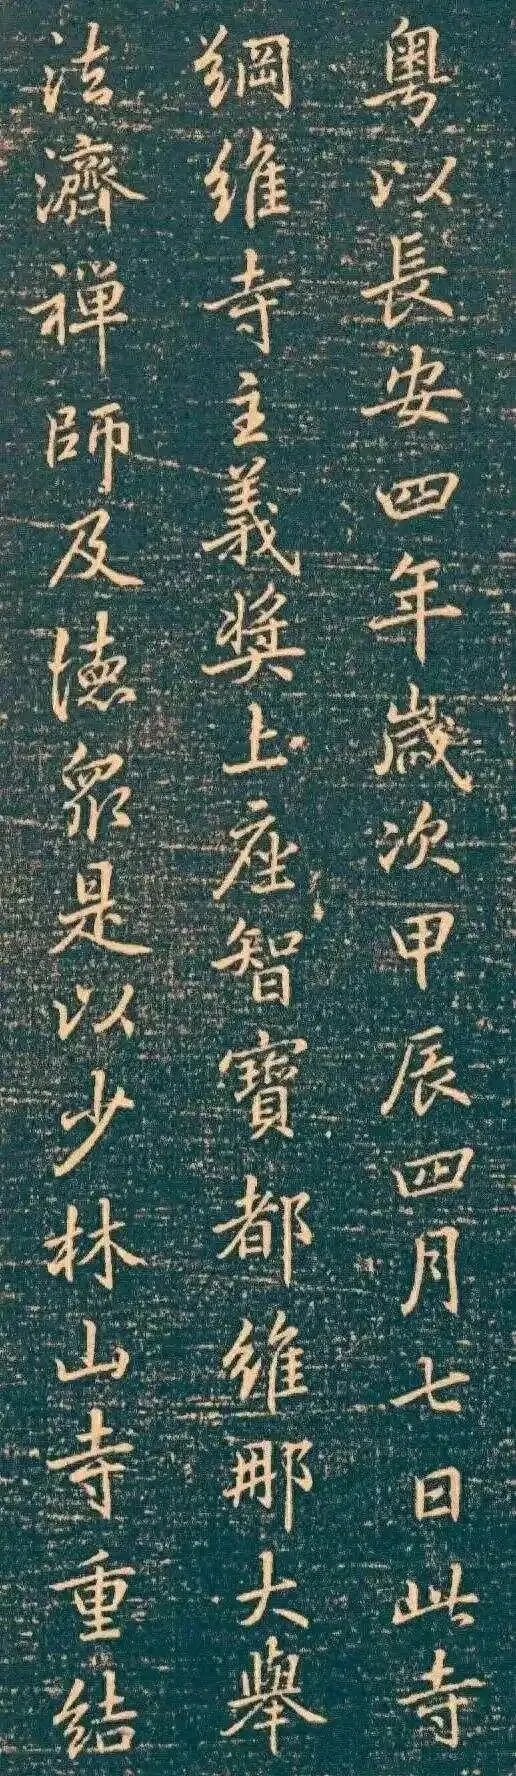 粵以長安四年歲次甲辰四月七日此寺
綱維寺主義奬上座智寶都維那大舉
法濟禅師及德眾是以少林山寺重結